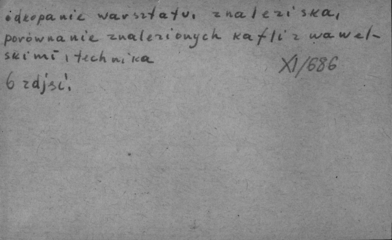 odkopanie warsztatu, znaleziska,
porównanie znalezionych kafli z wawel-
skimi i technika
XI/686
6 zdjęć.